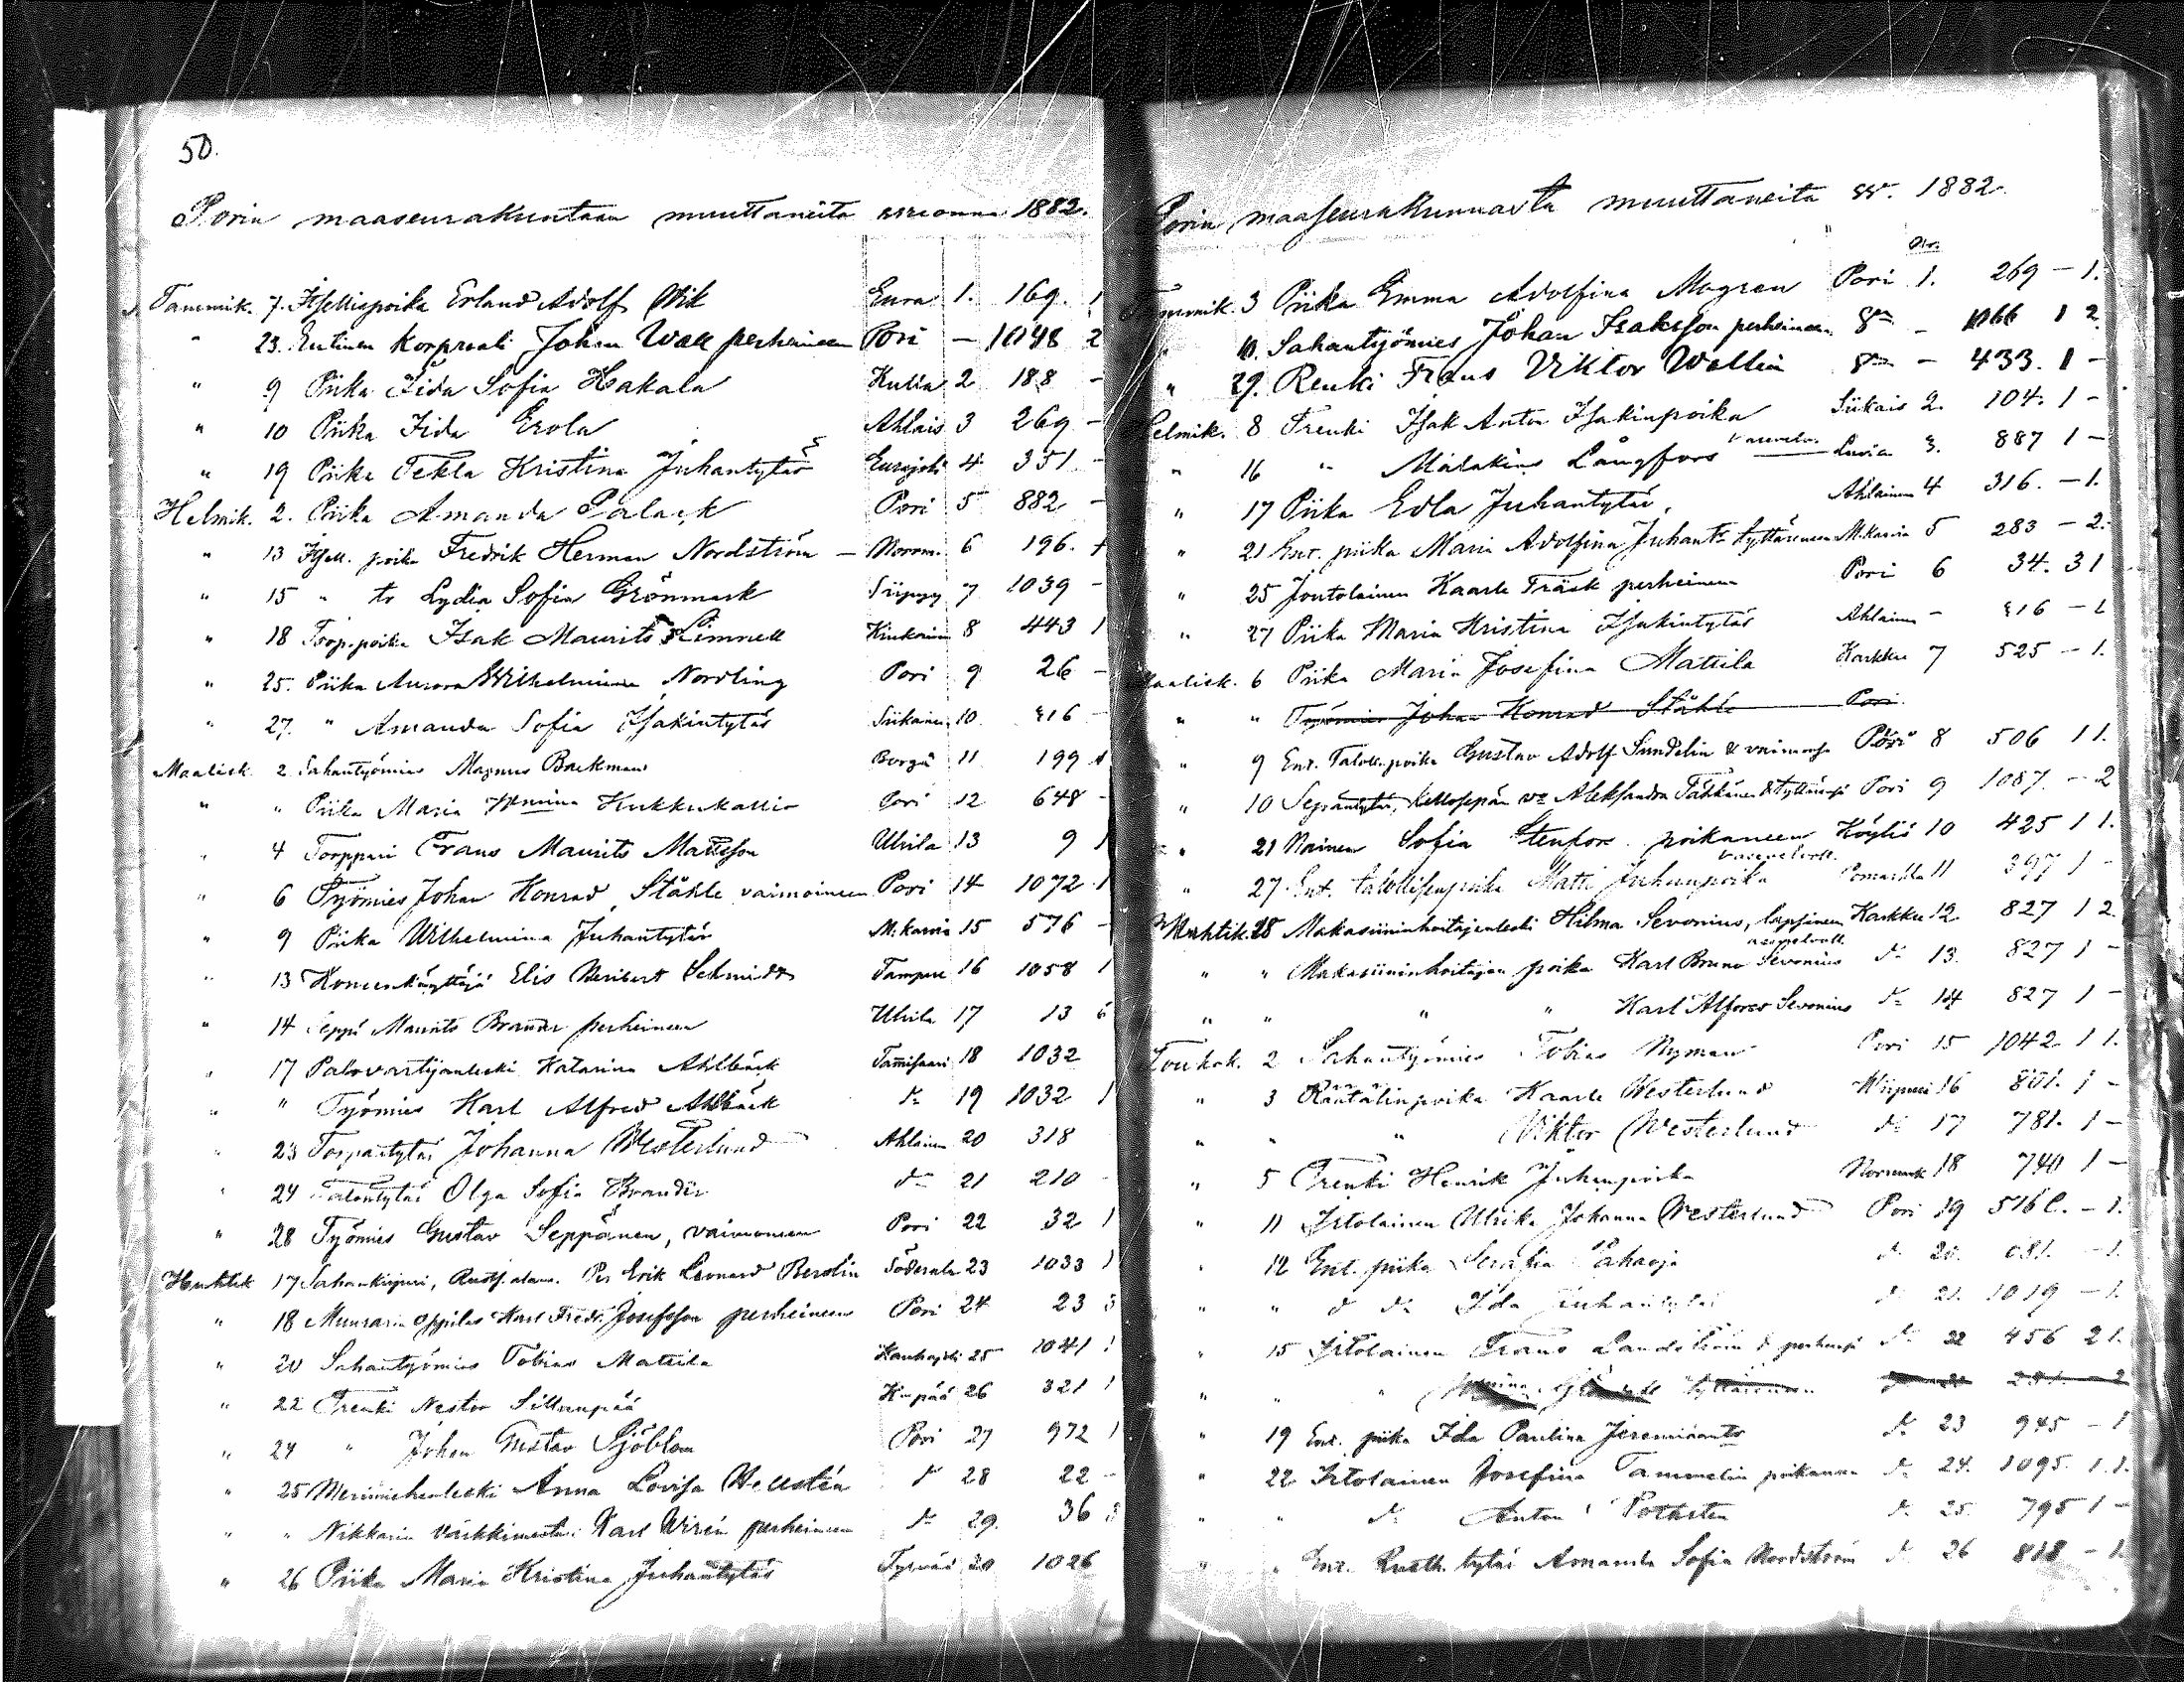 50.
Porin maaseurakuntaan muuttaneita vuonna 1882.
Tammik. 7. Itsellispoika Erland Adolf Vik Eura 1. 169. 1
" 23. Entinen Korpraali Johan Wall perheineen Pori — 1048 2
" 9 Piika Iida Sofia Hakala 2 188 -
" 10 Piika Iida Erola Ahlais 3 269 -
" 19 Piika Tekla Kristina Juhantytär Eurajoki 4 351 -
Helmik. 2. Piika Amanda Palack Pori 5 882 -
" 13 Itsell. poika Fredrik Herman Nordström — Norrm. 6 196. 1
" 15 " tr Lydia Sofia Grönmark Siipyy 7 1039 -
" 18 Torp. poika Isak Maurits Limnell Kiukainen 8 443 1
" 25. Piika Aurora Wilhelmina Nordling Pori 9 26 -
" 27. " Amanda Sofia Isakintytär Siikainen 10. 816 -
Maalisk. 2 Sahantyömies Magnus Backman Borgå 11 199 1
" " Piika Maria Wmiina Kukkukallio Pori 12 648 -
" 4 Torppari Frans Maurits Mattsson Ulvila 13 9 1
" 6 Työmies Johan Konrad Ståhle vaimoineen Pori 14 1072 1
" 9 Piika Wilhelmina Juhantytär M:karvia 15 576 -
" 13 Koneenkäyttäjä Elis Heribert Schmidt Tampere 16 1058 1
" 14 Seppä Maurits Brander perheineen Ulvila 17 13 6
" 17 Palovartijanleski Katarina Ahlbäck Tammisaari 18 1032
" " Työmies Karl Alfred Ahlbäck do 19 1032 1
" 23 Torpantytär Johanna Westerlund Ahlainen 20 318
" 24 Talontytär Olga Sofia Brander do 21 210 -
" 28 Työmies Gustav Seppänen, vaimoneen Pori 22 32 1
Huhtik 17 Sahankirjuri, Rustit. alam. Per Erik Leonard Berolin Söderala 23 1033 1
" 18 Muurarin oppilas Karl Fredr. Josefsson perheineen Pori 24 23 3
" 20 Sahantyömies Tobias Mattila Kauhajoki 25 1041 1
" 22 Trenki Nestor Sillanpää 26 321 1
" 24 " Johan Gustav Sjöblom Pori 27 972 1
" 25 Merimiehenleski Anna Lovisa Hellstén do 28 22 -
" " Nikkarin Karl Wirén perheineen do 29. 36 3
" 26 Piika Maria Kristina Juhantytär Tyrvää 30 1026
Porin maaseurakunnasta muuttaneita vv. 1882.
Nro.
Tammik. 3 Piika Emma Adolfina Mogren Pori 1. 269 — 1.
" 10. Sahantyömies Johan Isaksson perheineen do — 1066 1 2.
" 29. Renki Frans Viktor Wallin do — 433. 1 -
Helmik. 8 Trenki Isak Anton Isakinpoika Siikais 2. 104. 1 -
" 16 " Malakias Långfors Luvia 3. 887 1 -
" 17 Piika Edla Juhantytär, Ahlainen 4 316. - 1.
" 21 Ent. piika Maria Adolfina Juhantr tyttärineen M:karvia 5 283 - 2.
" 25 Joutolainen Kaarle Träsk perheineen Pori 6 34. 3 1
" 27 Piika Maria Kristina Isakintytär Ahlainen - 816 - 1
Maalisk. 6 Piika Maria Josefina Mattila Karkku 7 525 - 1.
" " Työmies Johan Konrad Ståhle Pori
" 9 Ent. Taloll. poika Gustav Adolf Sundelin & vaimonsa Pori 8 506 1 1.
" 10 Sepäntytär, Kellosepän vo Aleksandra Tähkänen & tyttärensä Pori 9 1087. - 2
" 21 Nainen Sofia Stenfors poikaneen Köyliö 10 425 1 1.
" 27. Ent. talollisenpoika Matti Juhanpoika Pomarkku 11 397 1 -
Huhtik. 28 Makasiininhoitajanleski Hilma Sevonius, lapsineen Karkku 12 827 1 2
" " Makasiininhoitajan poika Karl Bruno Sevonius do 13. 827 1 -
" " " " Karl Alfred Sevonius do 14 827 1 -
Toukok. 2 Sahantyömies Tobias Nyman Pori 15 1042. 1 1.
" 3 Räätälinpoika Kaarle Westerlund Wiipuri 16 801. 1 -
" " " Viktor Westerlund do 17 781. 1 -
" 5 Trenki Henrik Juhanpoika Norrmark 18 740 1 -
" 11 Irtolainen Ulrika Johanna Westerlund Pori 19 516 C. - 1.
" 12 Ent. piika Serafia Pahaoja do 20. 681. - 1.
" " d do Ida Juhantytär do 21. 1019 - 1.
" 15 Irtolainen Frans Landström & perheensä do 22 456 2 1.
" " " tyttärineen
" 19 Ent. piika Ida Paulina Jeremiaantr do 23 945 - 1
" 22 Irtolainen Josefina Tammelin poikaneen do 24. 1095. 1. 1.
" " do Anton do 25. 795 1 -
" " Ent. Rusth. tytär Amanda Sofia Nordström do 26 818 - 1.